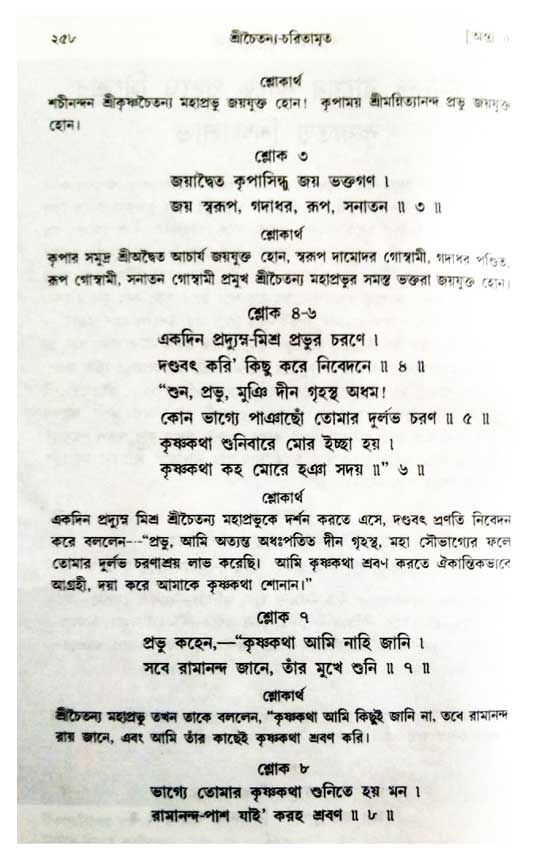 ২৫৮ শ্রীচৈতন্য-চরিতামৃত [অন্ত্য ৫
শ্লোকার্থ
শচীনন্দন শ্রীকৃষ্ণচৈতন্য মহাপ্রভু জয়যুক্ত হোন! কৃপাময় শ্রীমন্নিত্যানন্দ প্রভু জয়যুক্ত
হোন।
শ্লোক ৩
জয়াদ্বৈত কৃপাসিন্ধু জয় ভক্তগণ ।
জয় স্বরূপ, গদাধর, রূপ, সনাতন ॥ ৩ ॥
শ্লোকার্থ
কৃপার সমুদ্র শ্রীঅদ্বৈত আচার্য জয়যুক্ত হোন, স্বরূপ দামোদর গোস্বামী, গদাধর পণ্ডিত,
রূপ গোস্বামী, সনাতন গোস্বামী প্রমুখ শ্রীচৈতন্য মহাপ্রভুর সমস্ত ভক্তরা জয়যুক্ত হোন।
শ্লোক ৪-৬
একদিন প্রদ্যুম্ন-মিশ্র প্রভুর চরণে ।
দণ্ডবৎ করি' কিছু করে নিবেদনে ॥ ৪ ॥
“শুন, প্রভু, মুঞি দীন গৃহস্থ অধম!
কোন ভাগ্যে পাঞাছোঁ তোমার দুর্লভ চরণ ॥ ৫ ॥
কৃষ্ণকথা শুনিবারে মোর ইচ্ছা হয় ।
কৃষ্ণকথা কহ মোরে হঞা সদয় ॥” ৬ ॥
শ্লোকার্থ
একদিন প্রদ্যুম্ন মিশ্র শ্রীচৈতন্য মহাপ্রভুকে দর্শন করতে এসে, দণ্ডবৎ প্রণতি নিবেদন
করে বললেন—“প্রভু, আমি অত্যন্ত অধঃপতিত দীন গৃহস্থ, মহা সৌভাগ্যের ফলে
তোমার দুর্লভ চরণাশ্রয় লাভ করেছি। আমি কৃষ্ণকথা শ্রবণ করতে ঐকান্তিকভাবে
আগ্রহী, দয়া করে আমাকে কৃষ্ণকথা শোনান।”
শ্লোক ৭
প্রভু কহেন,—“কৃষ্ণকথা আমি নাহি জানি ।
সবে রামানন্দ জানে, তাঁর মুখে শুনি ॥ ৭ ॥
শ্লোকার্থ
শ্রীচৈতন্য মহাপ্রভু তখন তাকে বললেন, “কৃষ্ণকথা আমি কিছুই জানি না, তবে রামানন্দ
রায় জানে, এবং আমি তাঁর কাছেই কৃষ্ণকথা শ্রবণ করি।
শ্লোক ৮
ভাগ্যে তোমার কৃষ্ণকথা শুনিতে হয় মন ।
রামানন্দ-পাশ যাই' করহ শ্রবণ ॥ ৮ ॥